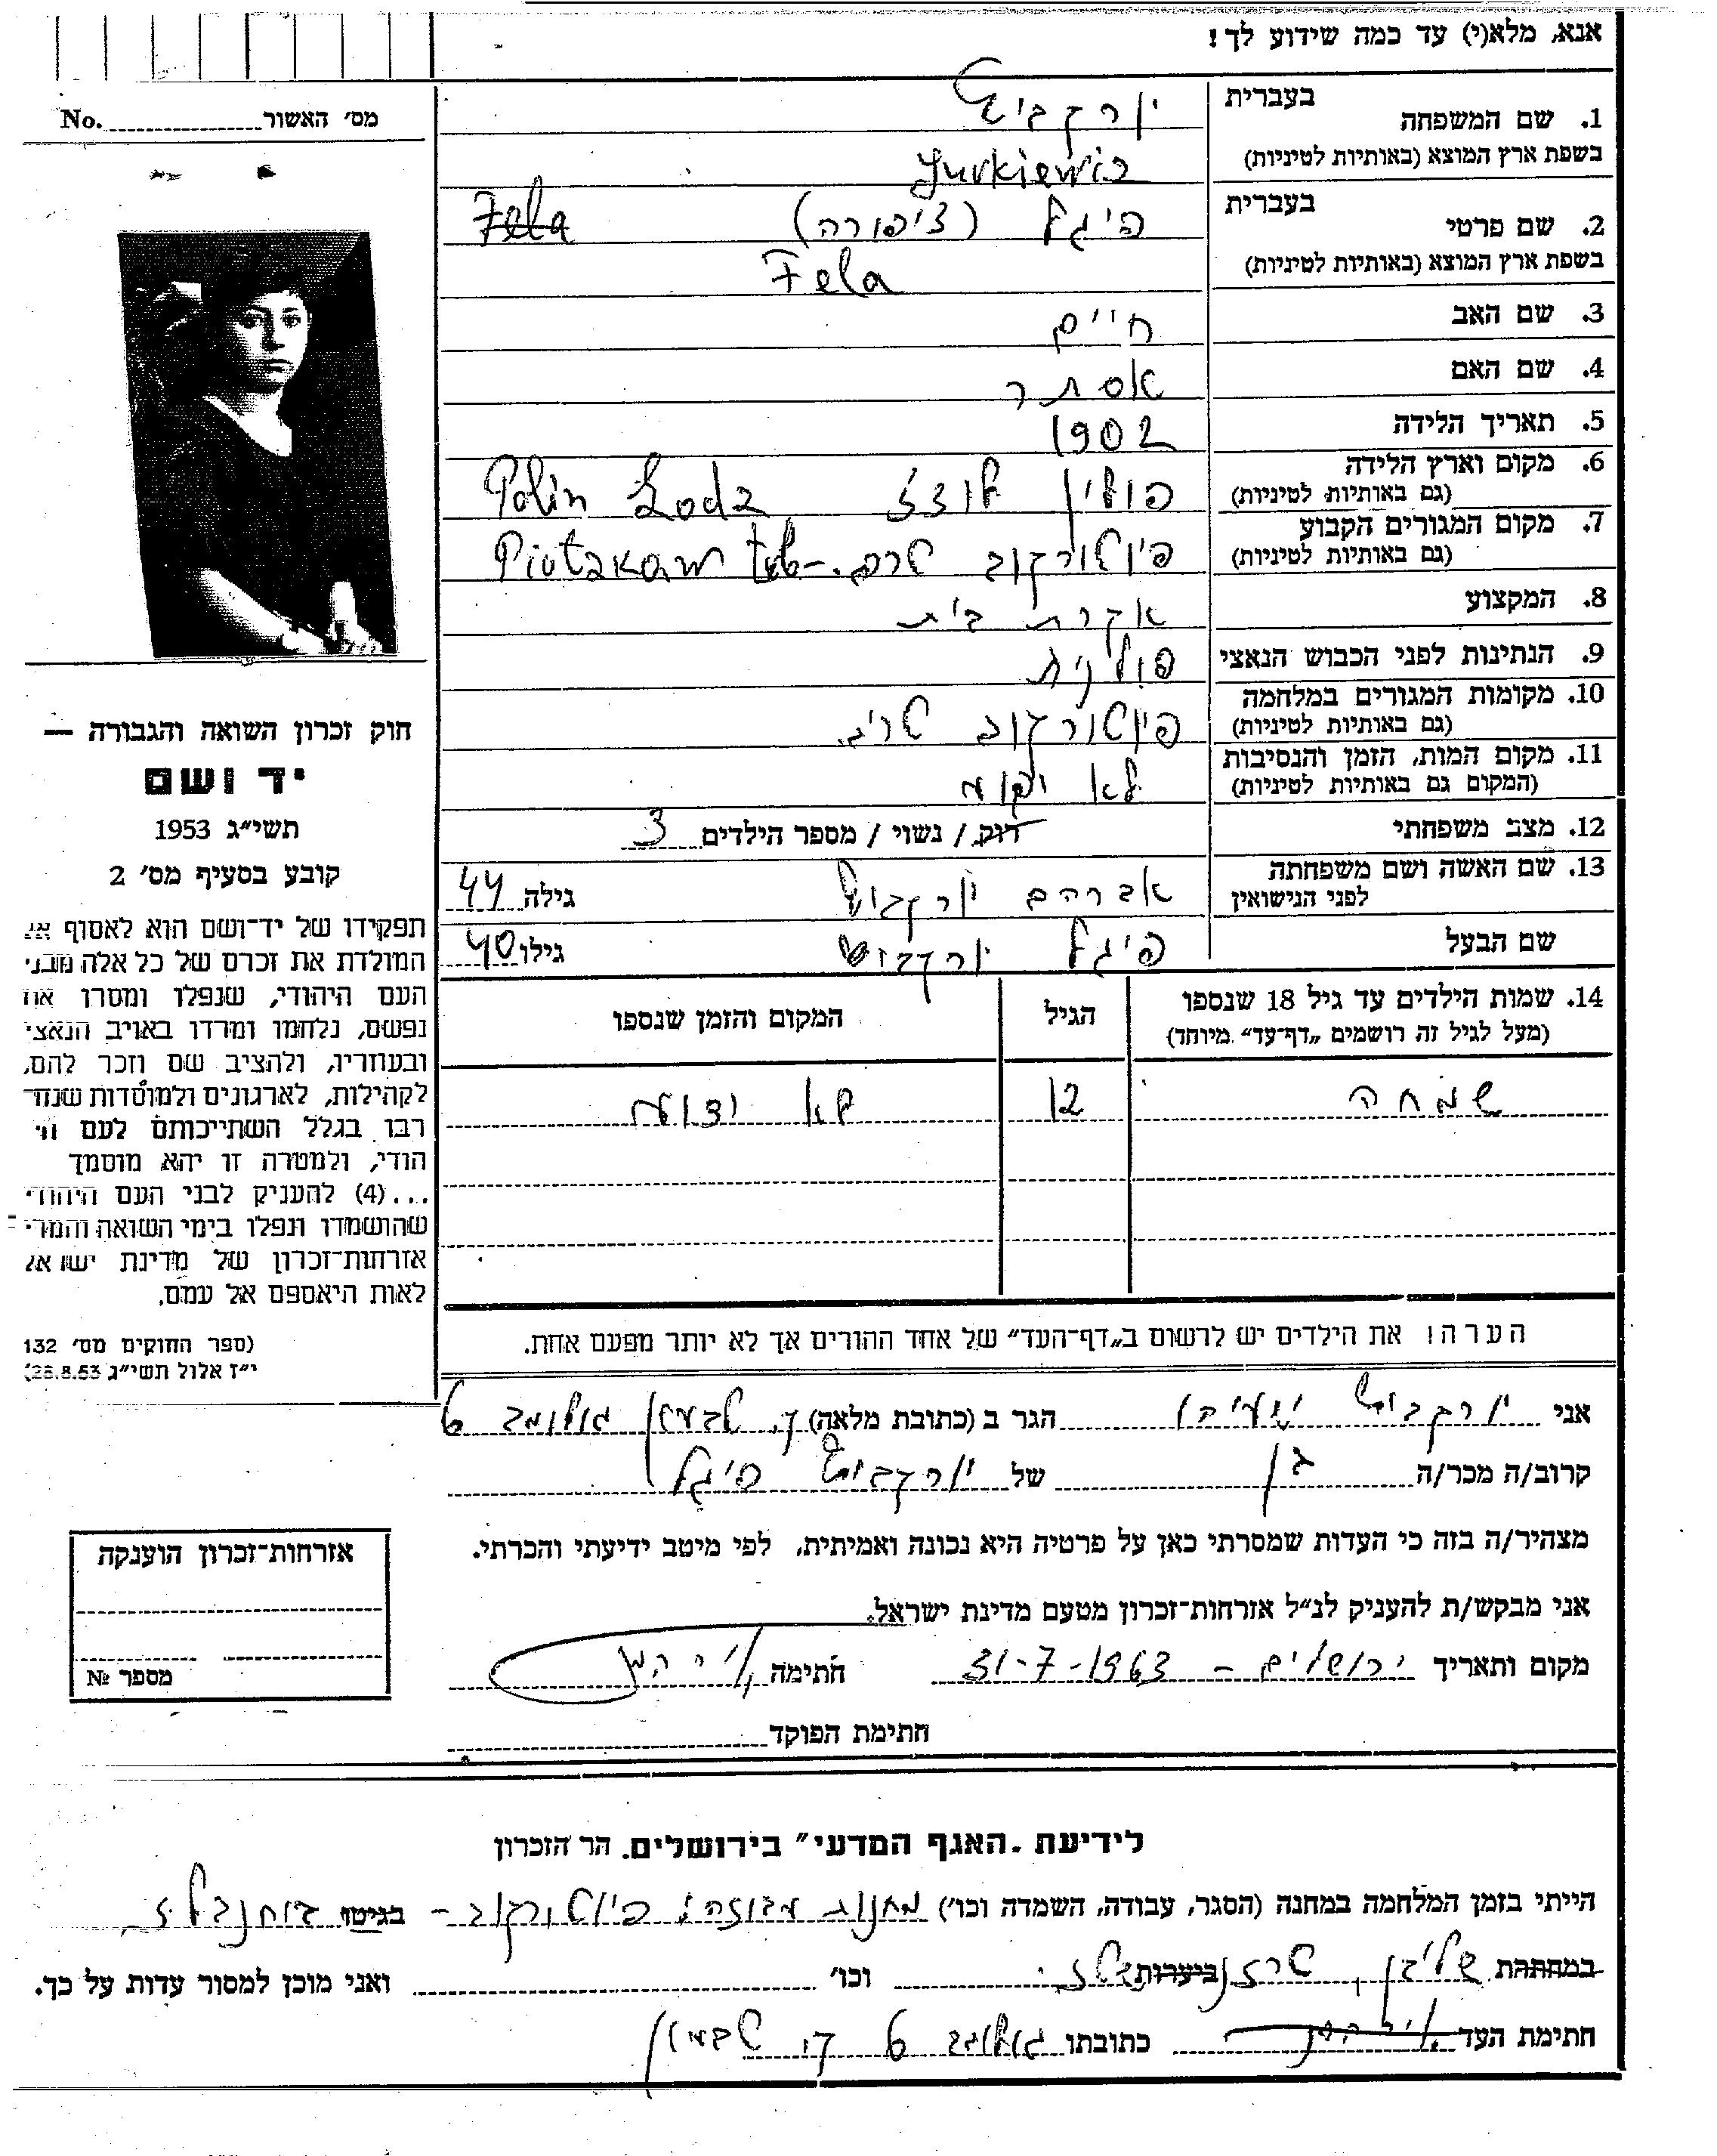 אנא, מלא(י) עד כמה שידוע לך!
No. מס׳ האשור
1. שם המשפחה בעברית יורקביץ
בשפת ארץ המוצא (באותיות לטיניות) Jurkiewicz
2. שם פרטי בעברית פיגל (ציפורה) Fela
בשפת ארץ המוצא (באותיות לטיניות) Fela
3. שם האב חיים
4. שם האם אסתר
5. תאריך הלידה 1902
6. מקום וארץ הלידה (גם באותיות לטיניות) פולין לודז Polin Lodz
7. מקום המגורים הקבוע (גם באותיות לטיניות) פיוטרקוב טריב.
8. המקצוע אקרת בית
9. הנתינות לפני הכבוש הנאצי פולנית
10. מקומות המגורים במלחמה (גם באותיות לטיניות) פיוטרקוב טריב.
11. מקום המות, הזמן והנסיבות (המקום גם באותיות לטיניות) לא
12. מצב משפחתי רוק / נשוי / מספר הילדים 3
13. שם האשה ושם משפחתה לפני הנישואין אברהם יורקביץ גילה 44
שם הבעל פיגל יורקביץ גילו 40
14. שמות הילדים עד גיל 18 שנספו (מעל לגיל זה רושמים „דף־עד״ מיוחד) הגיל המקום והזמן שנספו
שמחה 12 לא ידוע
הערה: את הילדים יש לרשום ב„דף־העד״ של אחד ההורים אך לא יותר מפעם אחת.
חוק זכרון השואה והגבורה —
יד ושם
תשי״ג 1953
קובע בסעיף מס׳ 2
תפקידו של יד־ושם הוא לאסוף אל
המולדת את זכרם של כל אלה מבני
העם היהודי, שנפלו ומסרו את
נפשם, נלחמו ומרדו באויב הנאצי
ובעוזריו, ולהציב שם וזכר להם,
לקהילות, לארגונים ולמוסדות שנח־
רבו בגלל השתייכותם לעם הי־
הודי, ולמטרה זו יהא מוסמך
...(4) להעניק לבני העם היהודי
שהושמדו ונפלו בימי השואה והמרי
אזרחות־זכרון של מדינת ישראל
לאות היאספם אל עמם.
(ספר החוקים מס׳ 132
י״ז אלול תשי״ג 28.8.53)
אני יורקביץ הגר ב (כתובת מלאה)
קרוב/ה מכר/ה בן של יורקביץ פיגל
מצהיר/ה בזה כי העדות שמסרתי כאן על פרטיה היא נכונה ואמיתית, לפי מיטב ידיעתי והכרתי.
אני מבקש/ת להעניק לנ״ל אזרחות־זכרון מטעם מדינת ישראל.
מקום ותאריך ירושלים – 31-7-1963 חתימה
חתימת הפוקד
אזרחות־זכרון הוענקה
מספר №
לידיעת „האגף המדעי״ בירושלים, הר הזכרון
הייתי בזמן המלחמה במחנה (הסגר, עבודה, השמדה וכו׳) פיוטרקוב – בגיטו
במחתרת ביערות וכו׳ ואני מוכן למסור עדות על כך.
חתימת העד כתובתו